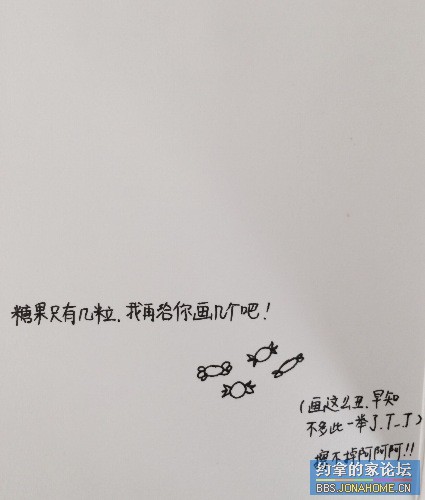 糖果只有几粒.我再给你画几个吧!
(画这么丑.早知
不多此一举了.T_T)
擦不掉阿阿阿!!
约拿的家论坛
BBS.JONAHOME.CN